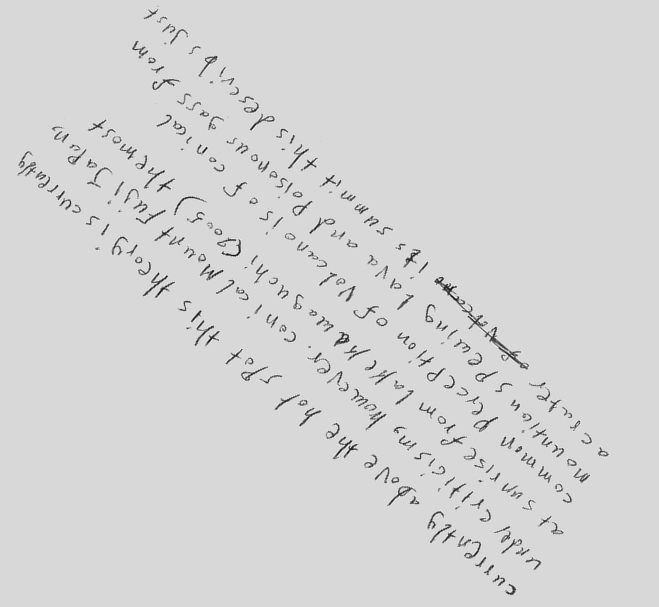 currently above the hot spot this theory is currently
under criticisms however. conical Mount Fuji Japan,
at sunrise from Lake Kawaguchi (2005) the most
common perception of Volcano is of conical
mountion spewing Lava and poisonous gass from
a crater its summit this describs just